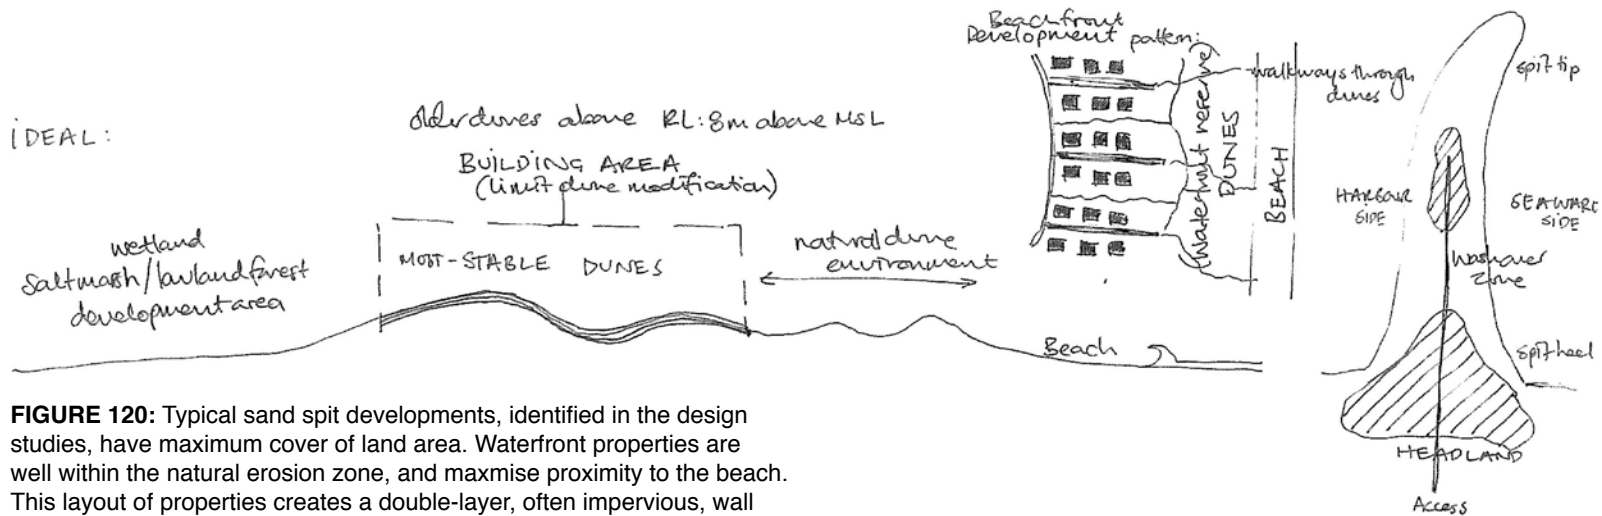 iDEAL:
older dunes above RL:8m above MSL
BUILDING AREA
(limit dune modification)
wetland
Saltmarsh/lowland forest
development area
MOST-STABLE DUNES
natural dune
environment
Beach
Beachfront
Development pattern:
(Waterfront reserve)
DUNES
BEACH
walkways through
dunes
spit tip
HARBOUR
SIDE
SEAWARD
SIDE
Washover
zone
Spit heel
HEADLAND
Access
FIGURE 120: Typical sand spit developments, identified in the design
studies, have maximum cover of land area. Waterfront properties are
well within the natural erosion zone, and maxmise proximity to the beach.
This layout of properties creates a double-layer, often impervious, wall